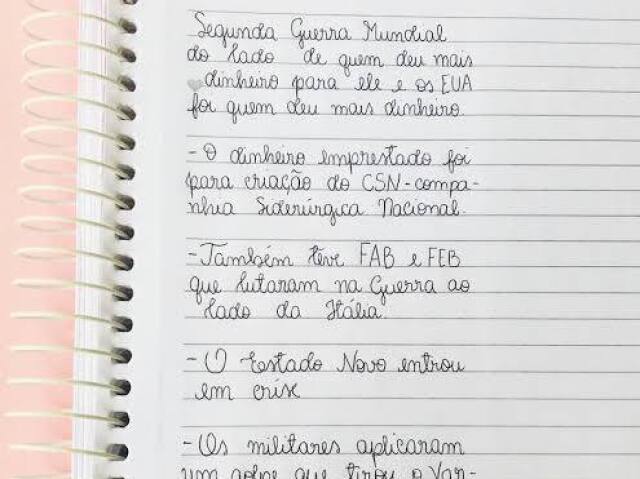 Segunda Guerra Mundial
do lado de quem deu mais
dinheiro para ele e os EUA
foi quem deu mais dinheiro.
- O dinheiro emprestado foi
para criação do CSN-compa-
nhia Siderúrgica Nacional.
- Também teve FAB e FEB
que lutaram na Guerra ao
lado da Itália.
- O Estado Novo entrou
em crise
- Os militares aplicaram
um golpe que tirou o Var-